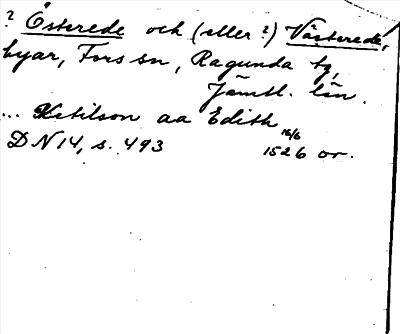 ? Österede och (eller ?) Västerede,
byar, Fors sn, Ragunda tg,
Jämtl. län.
... Ketilson aa Edith
DN 14, s. 493 16/6 1526 or.